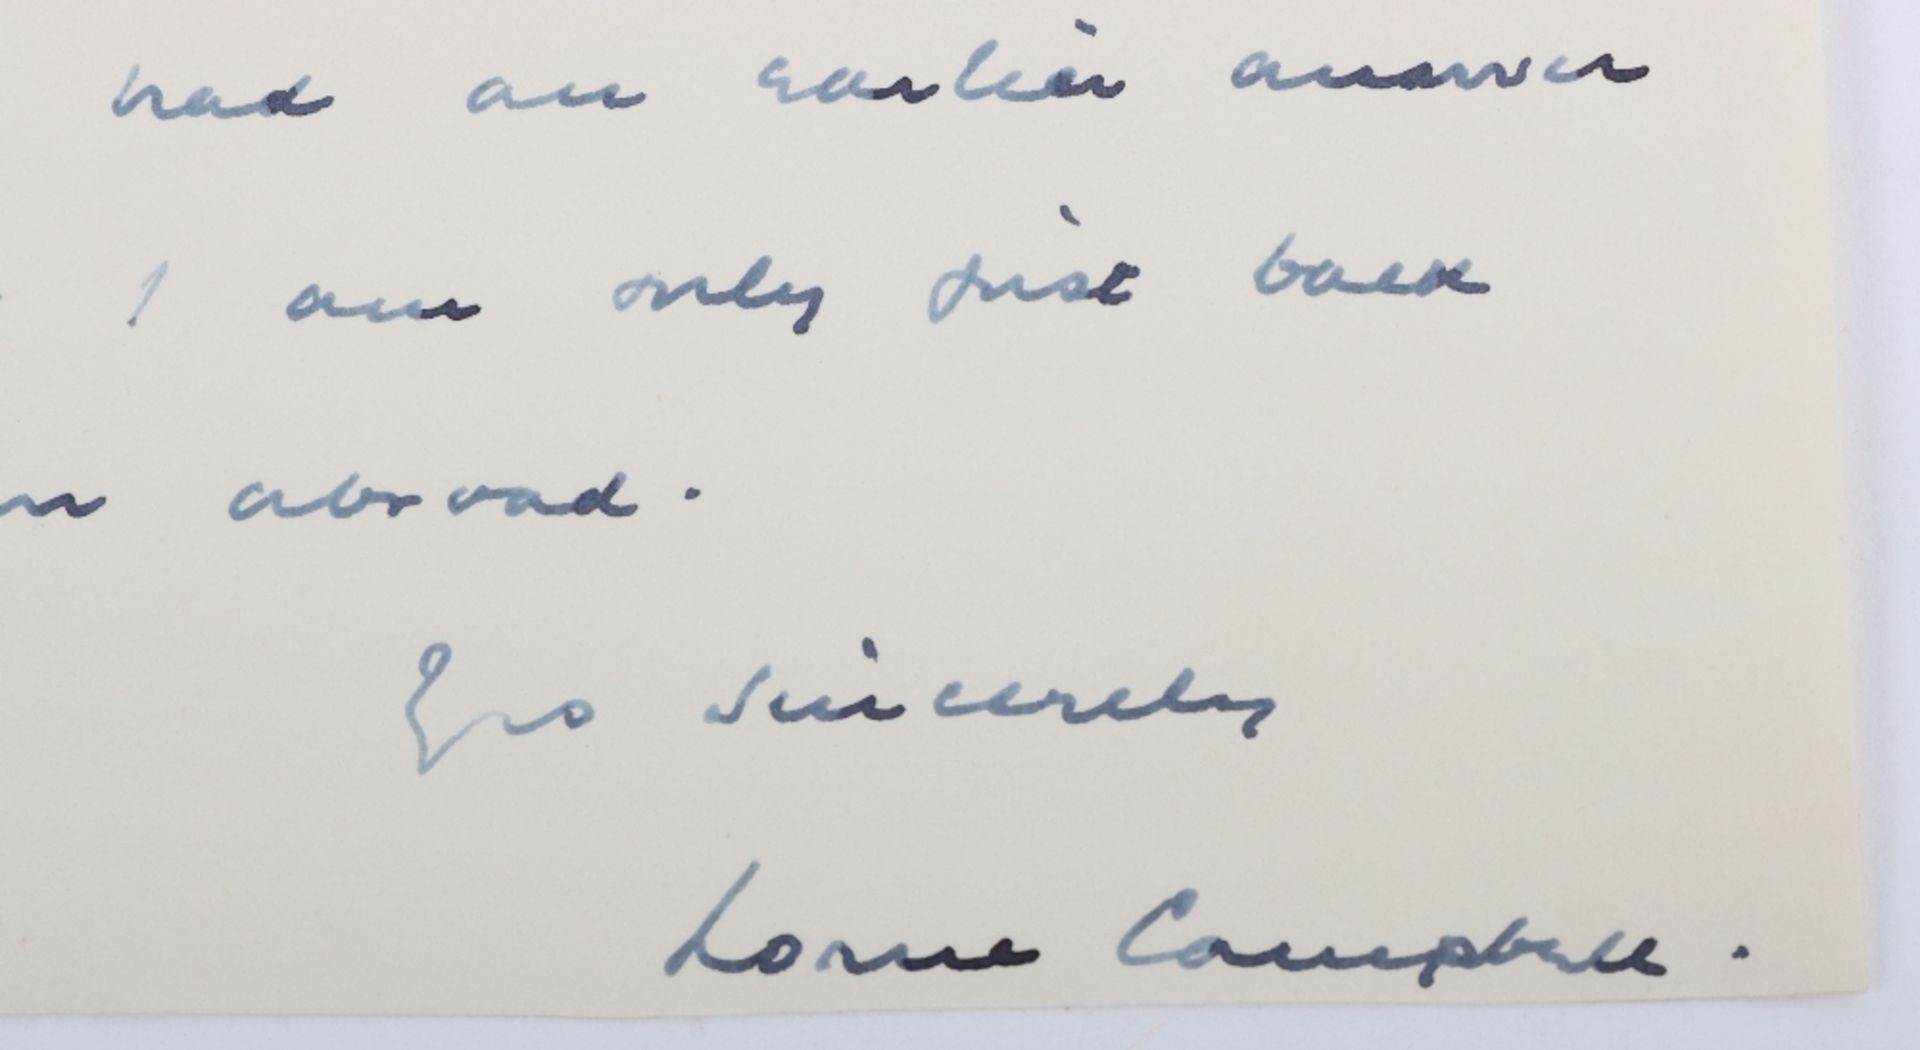 had an earlier answer
I am only just back
abroad.
Yrs sincerely
Lorne Campbell.